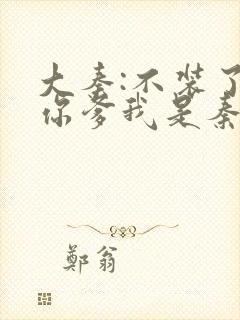 大秦:不装了
你爹我是秦
鄭翁